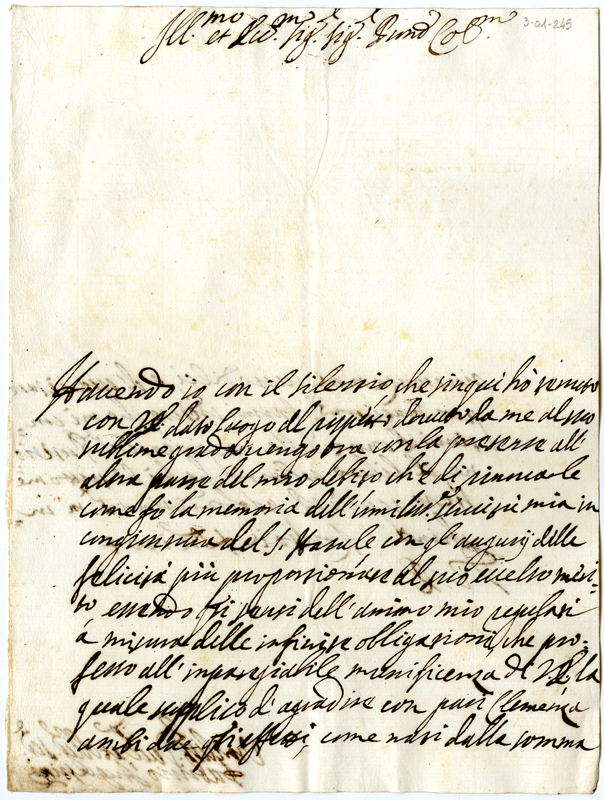 Ill.mo et Ecc.mo Sig.r Sig.r Pron Col.mo
3-01-245
Havendo io con il silenzio, che sin qui hò tenuto
con V.E. dato luogo al rispetto dovuto da me al suo
sublime grado, vengo ora con la presente all'
altra parte del mio debito ch'è di rinovarle
come fò la memoria dell'umiliss.a servitù mia in
congiuntura del S. Natale con gl'augurij delle
felicità più proporzionate al suo eccelso meri-
to, essendo i sensi dell'animo mio regolati
à misura delle infinite obligazioni, che pro-
fesso all'impareggiabile munificenza di V.E. la
quale supplico d'agradire con pari clemenza
ambidue gli effetti, come nati dalla somma